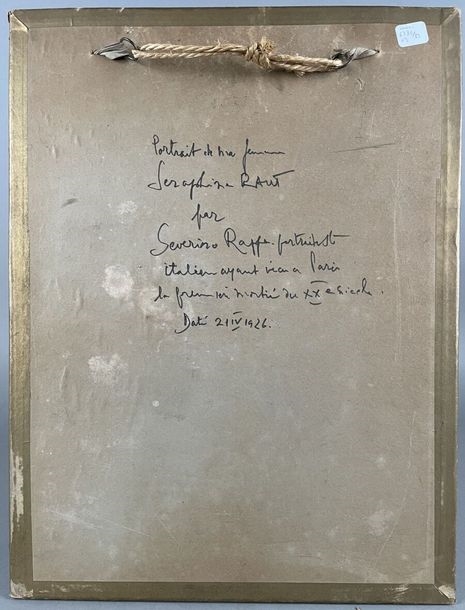 Portrait de ma femme
Seraphina RAUT
par
Severino Rappa. portraitist
italien ayant vécu a Paris
la premier moitié du XXe siecle.
Daté 21 IV 1926.